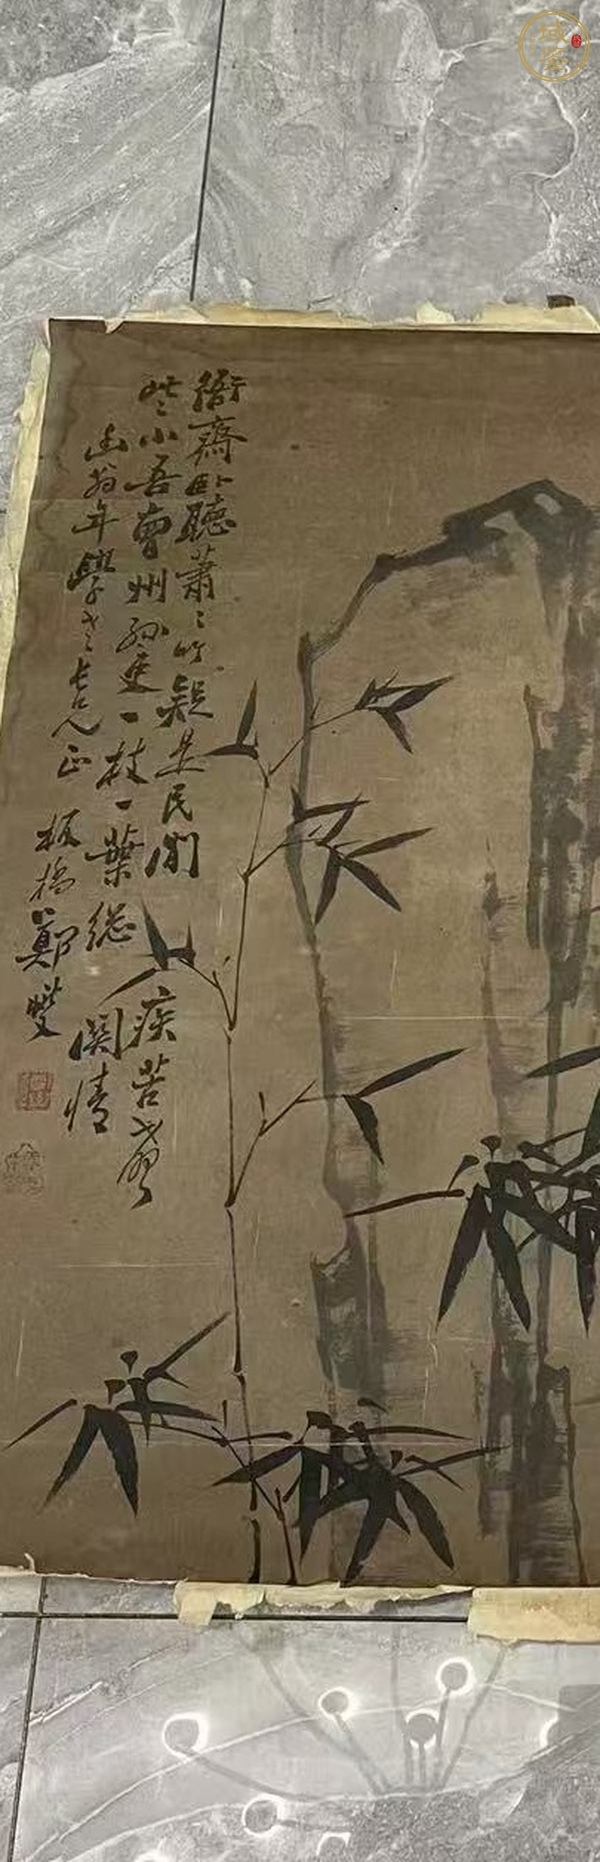 衙齋卧聽蕭〻竹疑是民間疾苦聲
些小吾曹州縣吏一枝一葉總關情
翁年學老長兄正
板橋鄭燮